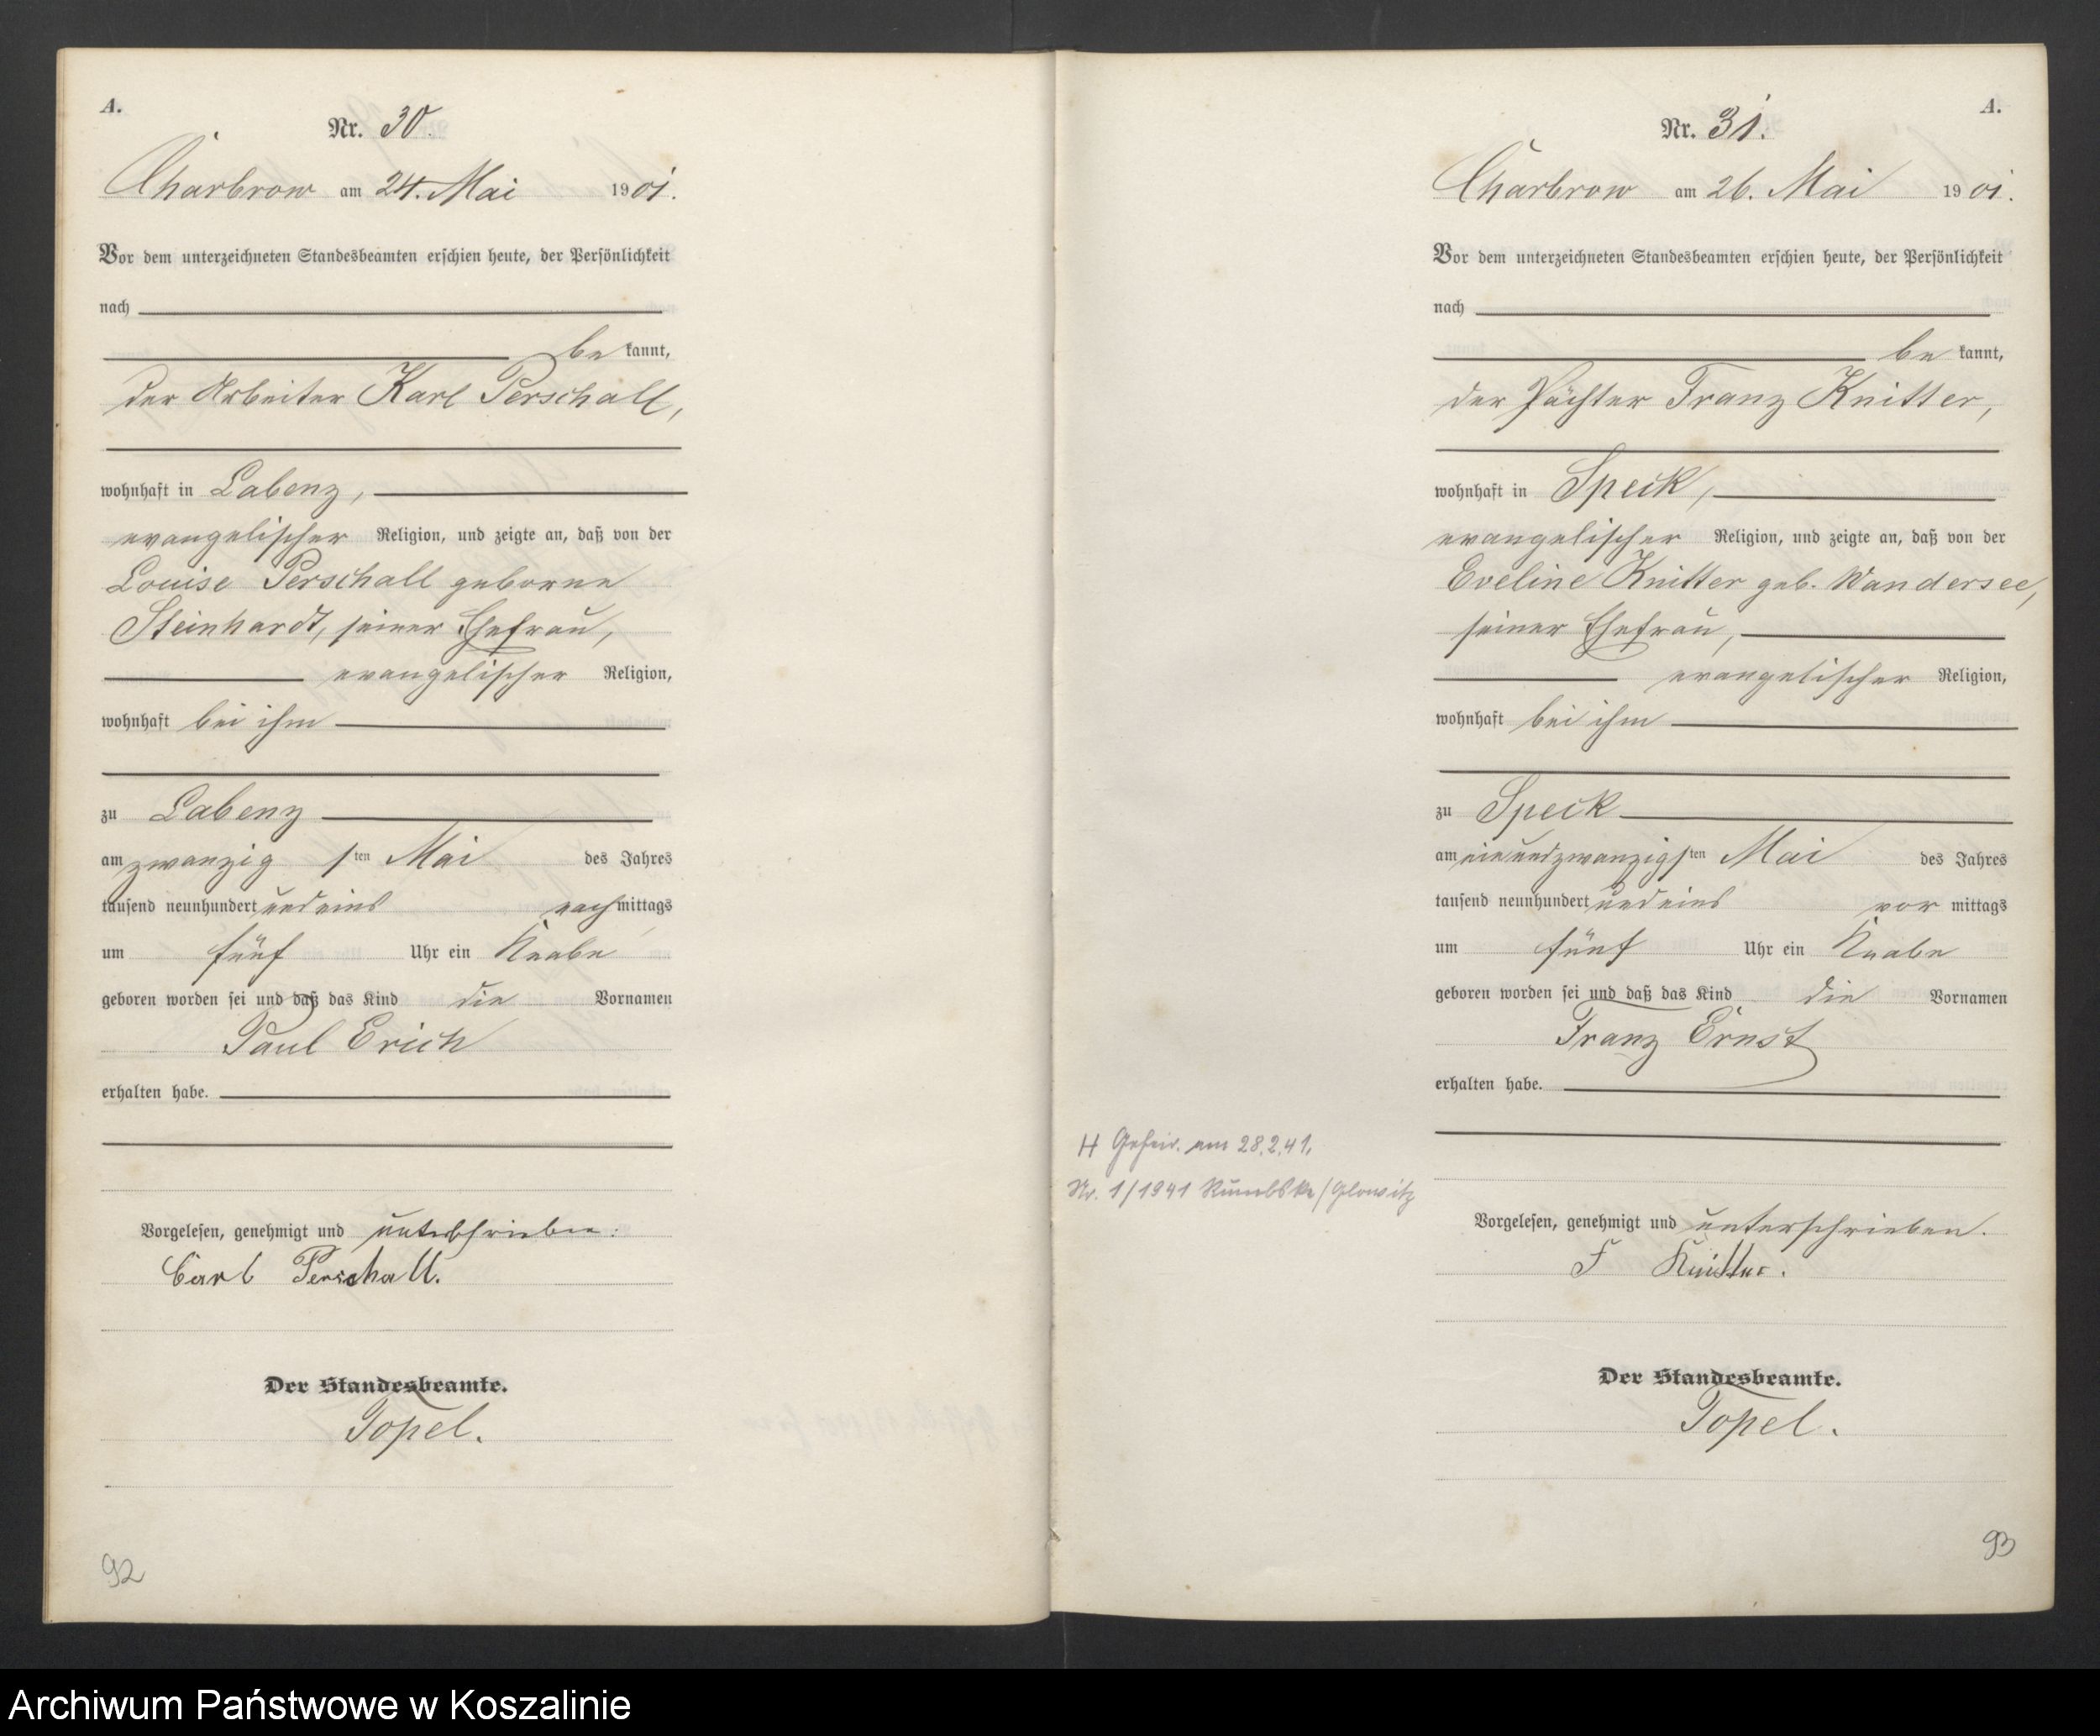 A.
Nr. 30.
Charbrow am 24. Mai 1901.
Vor dem unterzeichneten Standesbeamten erschien heute, der Persönlichkeit
nach
be kannt,
der Arbeiter Karl Perschall,
wohnhaft in Labenz,
evangelischer Religion, und zeigte an, daß von der
Louise Perschall geborene
Steinhardt, seiner Ehefrau,
evangelischer Religion,
wohnhaft bei ihm
zu Labenz
am zwanzig sten Mai des Jahres
tausend neunhundert und eins nachmittags
um fünf Uhr ein Knabe
geboren worden sei und daß das Kind die Vornamen
Paul Erich
erhalten habe.
Vorgelesen, genehmigt und unterschrieben.
Carl Perschall.
Der Standesbeamte.
Topel.
92
A.
Nr. 31.
Charbrow am 26. Mai 1901.
Vor dem unterzeichneten Standesbeamten erschien heute, der Persönlichkeit
nach
be kannt,
der Pächter Franz Knitter,
wohnhaft in Speck,
evangelischer Religion, und zeigte an, daß von der
Eveline Knitter geb. Wandersee,
seiner Ehefrau,
evangelischer Religion,
wohnhaft bei ihm
zu Speck
am einundzwanzigsten Mai des Jahres
tausend neunhundert und eins vor mittags
um fünf Uhr ein Knabe
geboren worden sei und daß das Kind die Vornamen
Franz Ernst
erhalten habe.
H Geheir. am 28.2.41.
Nr. 1/1941 Rumbske/Glowitz
Vorgelesen, genehmigt und unterschrieben.
F Knitter.
Der Standesbeamte.
Topel.
93
Archiwum Państwowe w Koszalinie